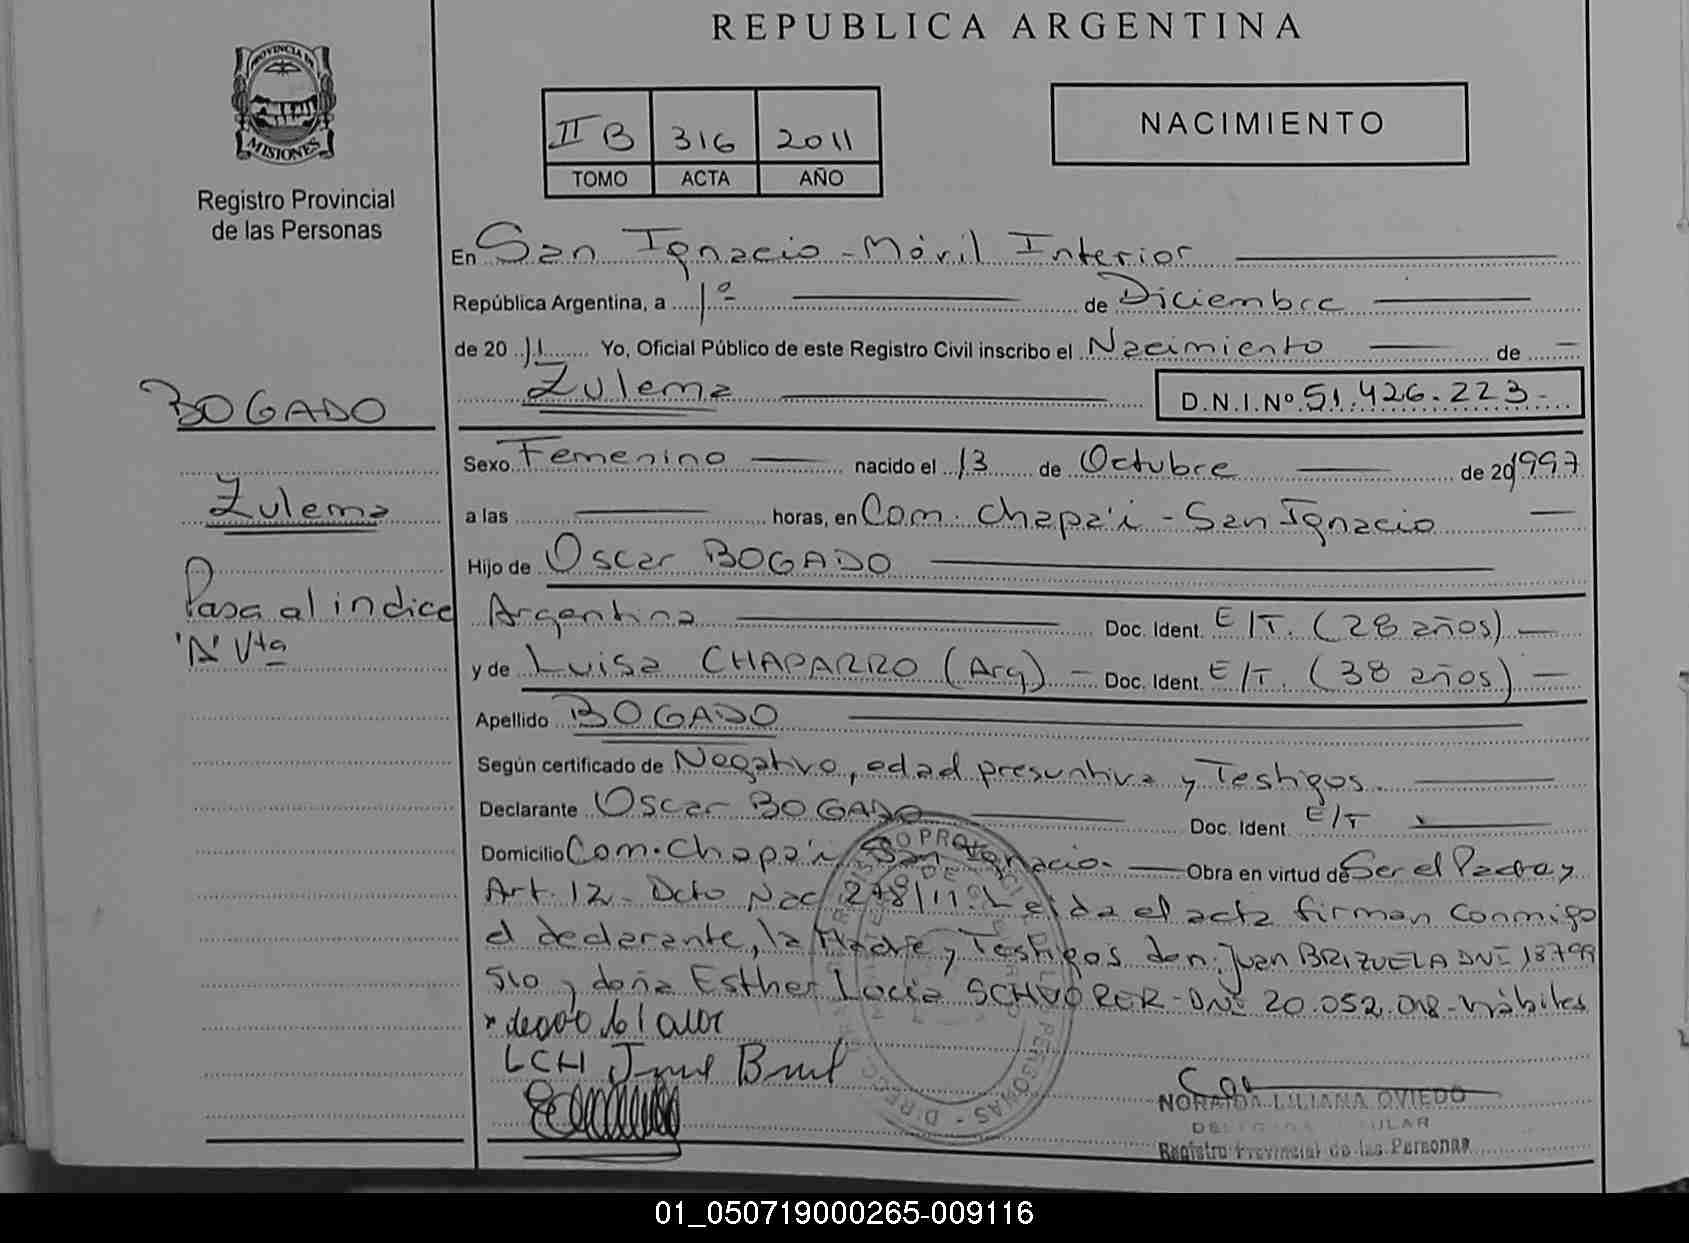 REPUBLICA ARGENTINA
PROVINCIA DE
MISIONES
Registro Provincial
de las Personas
II B 316 2011
TOMO ACTA AÑO
NACIMIENTO
En San Ignacio - Móvil Interior
República Argentina, a 1º de Diciembre
de 20 11 Yo, Oficial Público de este Registro Civil inscribo el Nacimiento de
Zulema D.N.I.Nº 51.426.223-
BOGADO
Sexo Femenino nacido el 13 de Octubre de 201997
Zulema
a las horas, en Com. Chapa'i - San Ignacio
Hijo de Oscar BOGADO
Pasa al indice
'N' Vta
Argentina Doc. Ident. E/T. (28 años)
y de Luisa CHAPARRO (Arg) - Doc. Ident. E/T. (38 años)
Apellido BOGADO
Según certificado de Negativo, edad presuntiva y Testigos.
Declarante Oscar BOGADO Doc. Ident. E/T
Domicilio Com. Chapa'i San Ignacio. Obra en virtud de Ser el Padre y
Art. 12 - Dcto Nac 278/11. Leida el acta firman conmigo
el declarante, la Madre y Testigos don: Juan BRIZUELA DNI 18799
510 y doña Esther Lucia DNI 20.052.018 - hábiles
LCH
NORAIDA LILIANA OVIEDO
Registro Provincial de las Personas
01_050719000265-009116